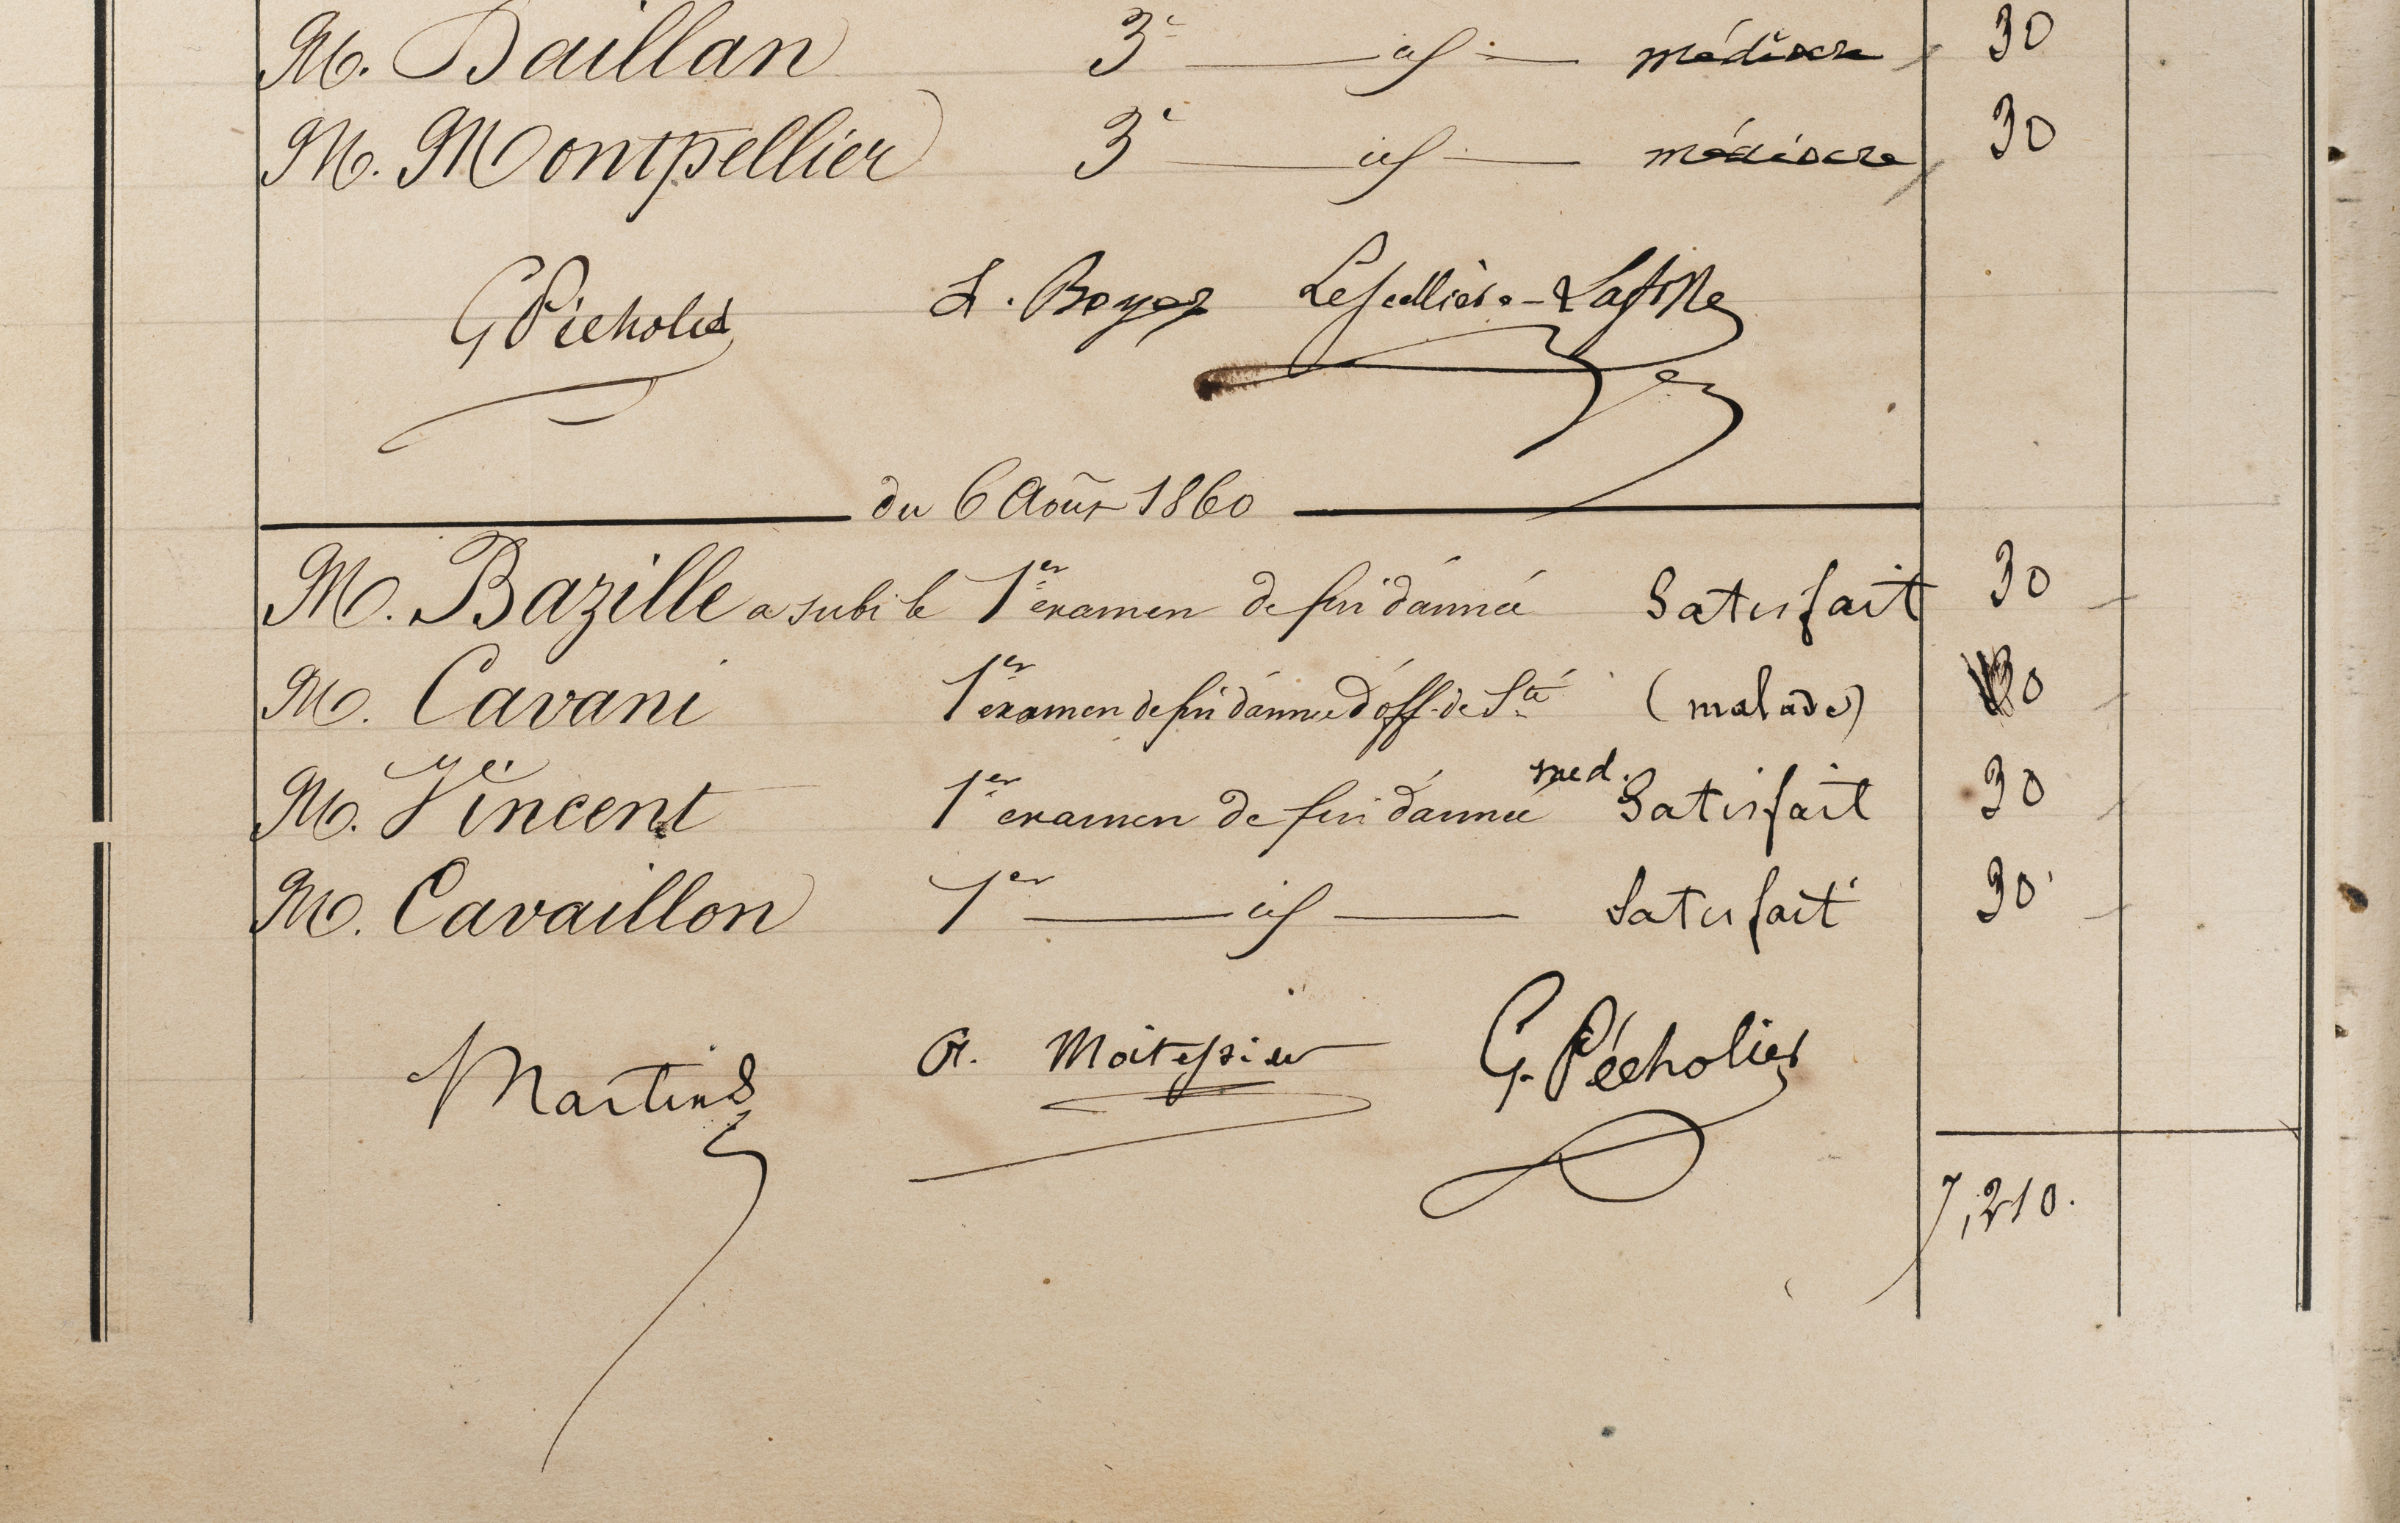 M. Baillan 3e id médiocre 30
M. Montpellier 3e id médiocre 30
G Pécholier L. Boyer
du 6 Août 1860
M. Bazille a subi le 1er examen de fin d'année Satisfait 30
M. Cavani 1er examen de fin d'année d'off. de Sté (malade) 30
M. Vincent 1er examen de fin d'année med. Satisfait 30
M. Cavaillon 1er id Satisfait 30
Martins A. Moitessier G. Pécholier
7,210.